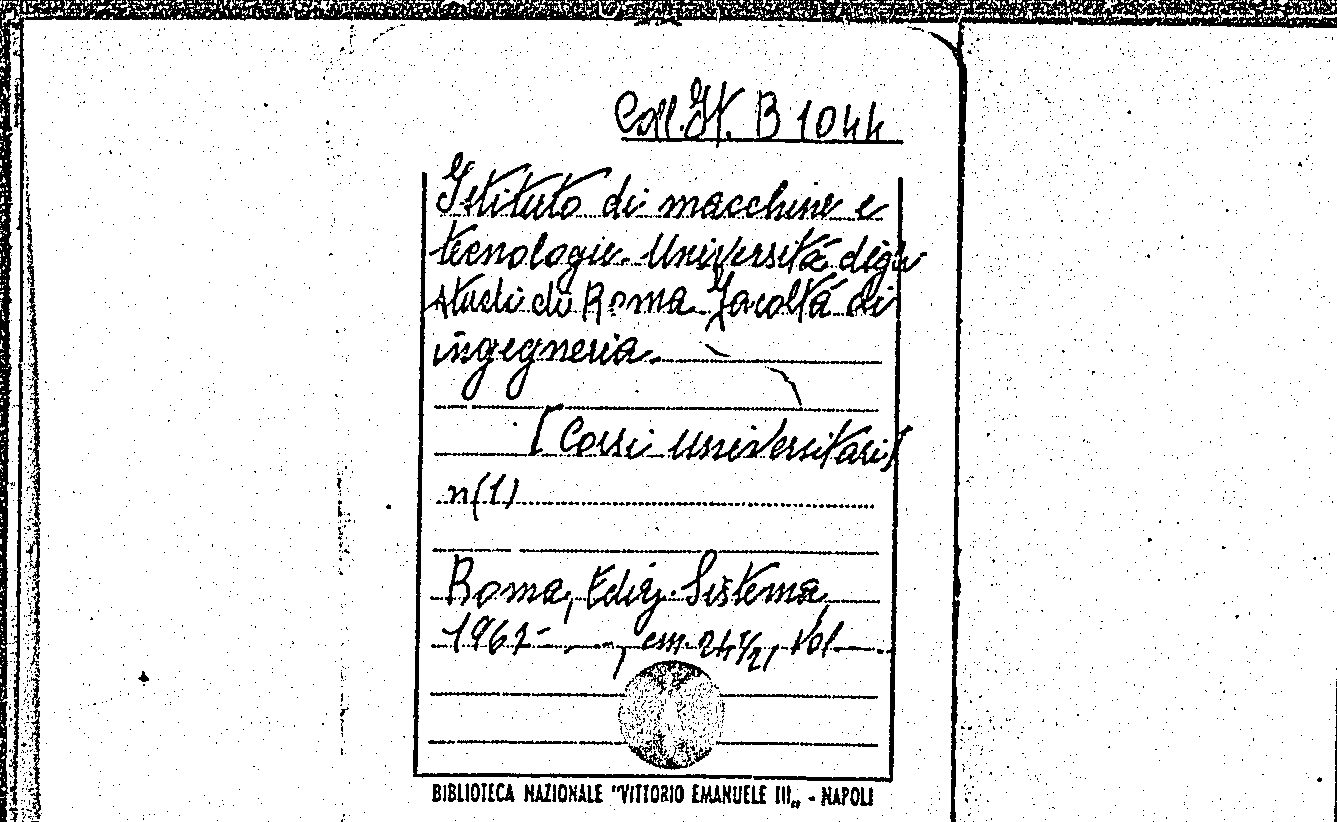 Coll. It. B 1044
Istituto di macchine e
tecnologie. Università degli
studi di Roma. Facoltà di
ingegneria.
[Corsi universitari]
n(1)
Roma, Ediz. Sistema,
1962- , cm. 24½, Vol
BIBLIOTECA NAZIONALE "VITTORIO EMANUELE III„ - NAPOLI